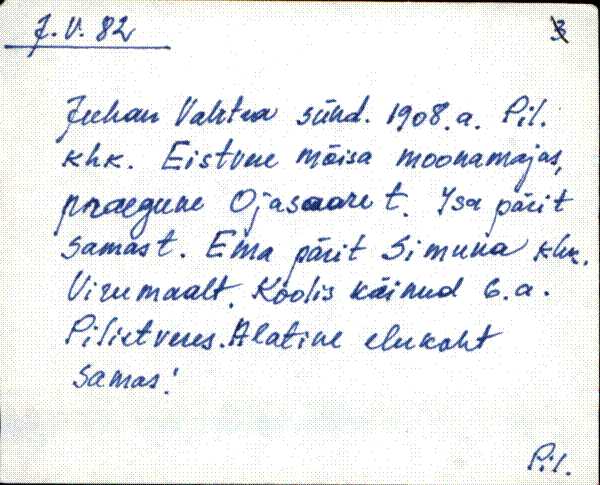 7. V. 82
3
Juhan Vahtra sünd. 1908. a. Pil.
khk. Eistvere mõisa moonamajas,
praegune Ojasaare t. Isa pärit
samast. Ema pärit Simuna khk.
Virumaalt. Koolis käinud 6. a.
Pilistveres. Alatine elukoht
samas!
Pil.